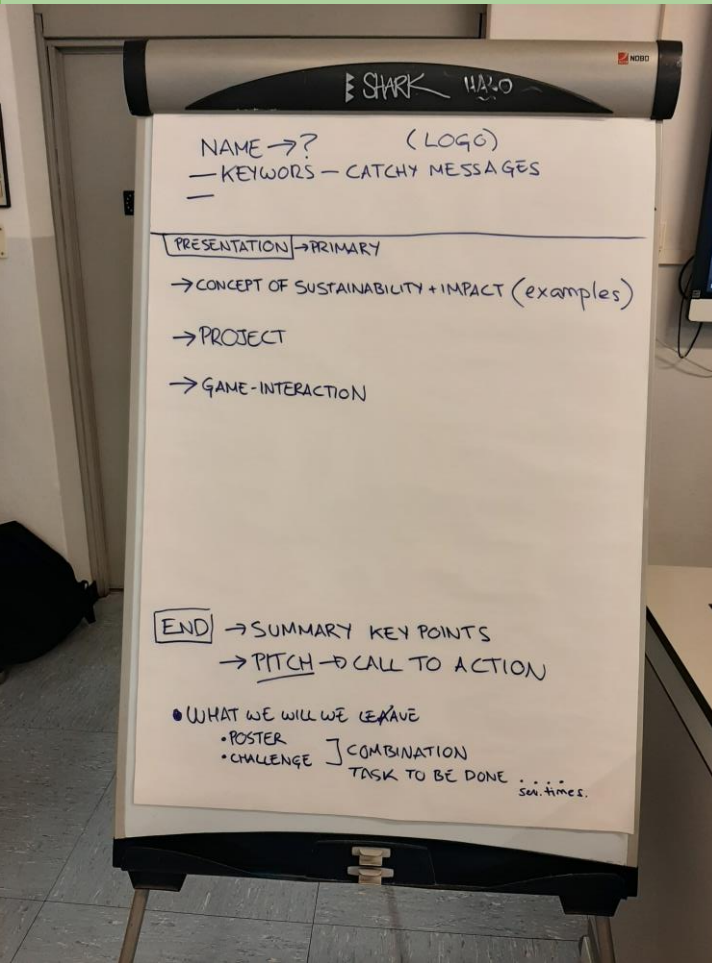 NOBO
SHARK HALO
NAME → ? (LOGO)
— KEYWORS — CATCHY MESSAGES
—
PRESENTATION → PRIMARY
→ CONCEPT OF SUSTAINABILITY + IMPACT (examples)
→ PROJECT
→ GAME-INTERACTION
END → SUMMARY KEY POINTS
→ PITCH → CALL TO ACTION
• WHAT WE WILL WE LEAVE
• POSTER
• CHALLENGE ] COMBINATION
TASK TO BE DONE ....
sev. times.